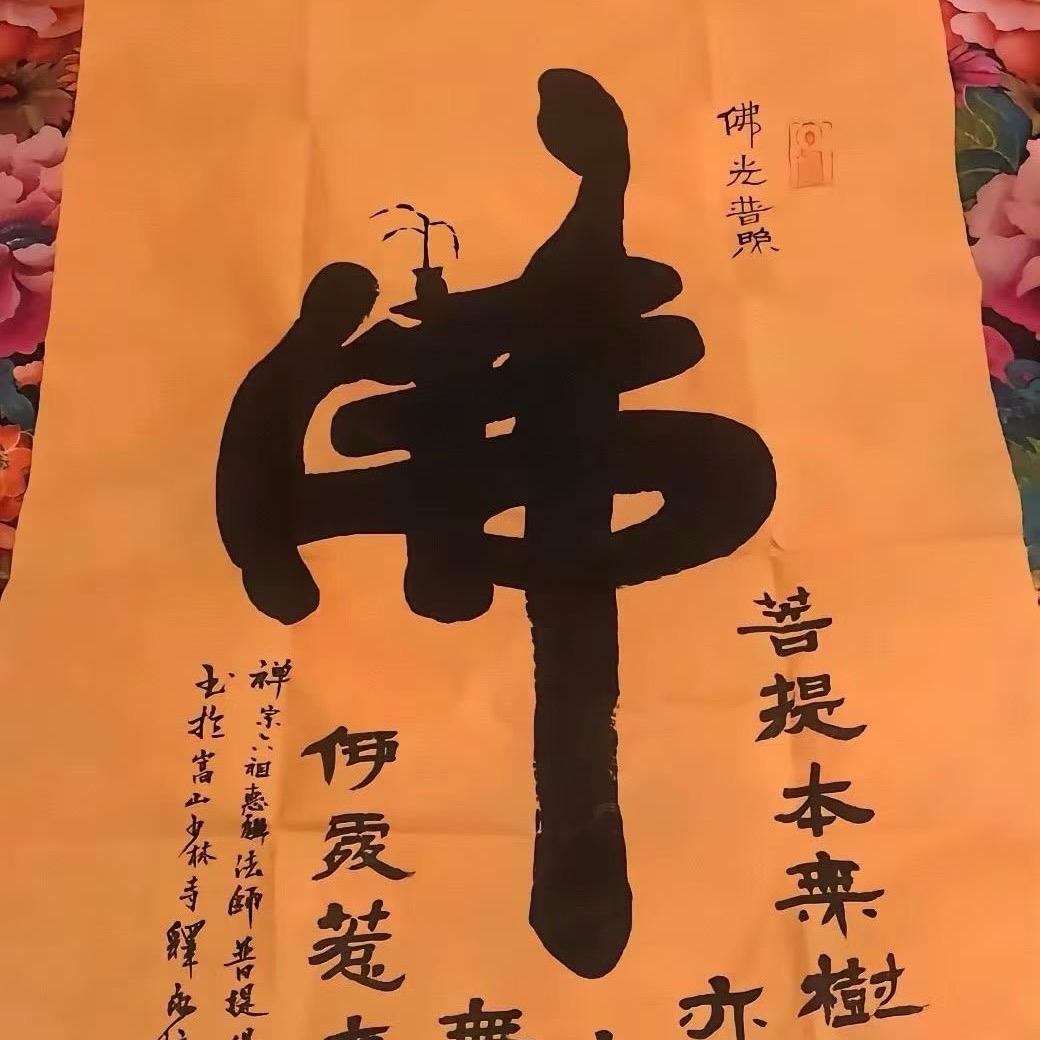 佛光普照
佛
菩提本無樹
亦
無
何處惹
禅宗六祖惠能法師普提
书於嵩山少林寺釋永